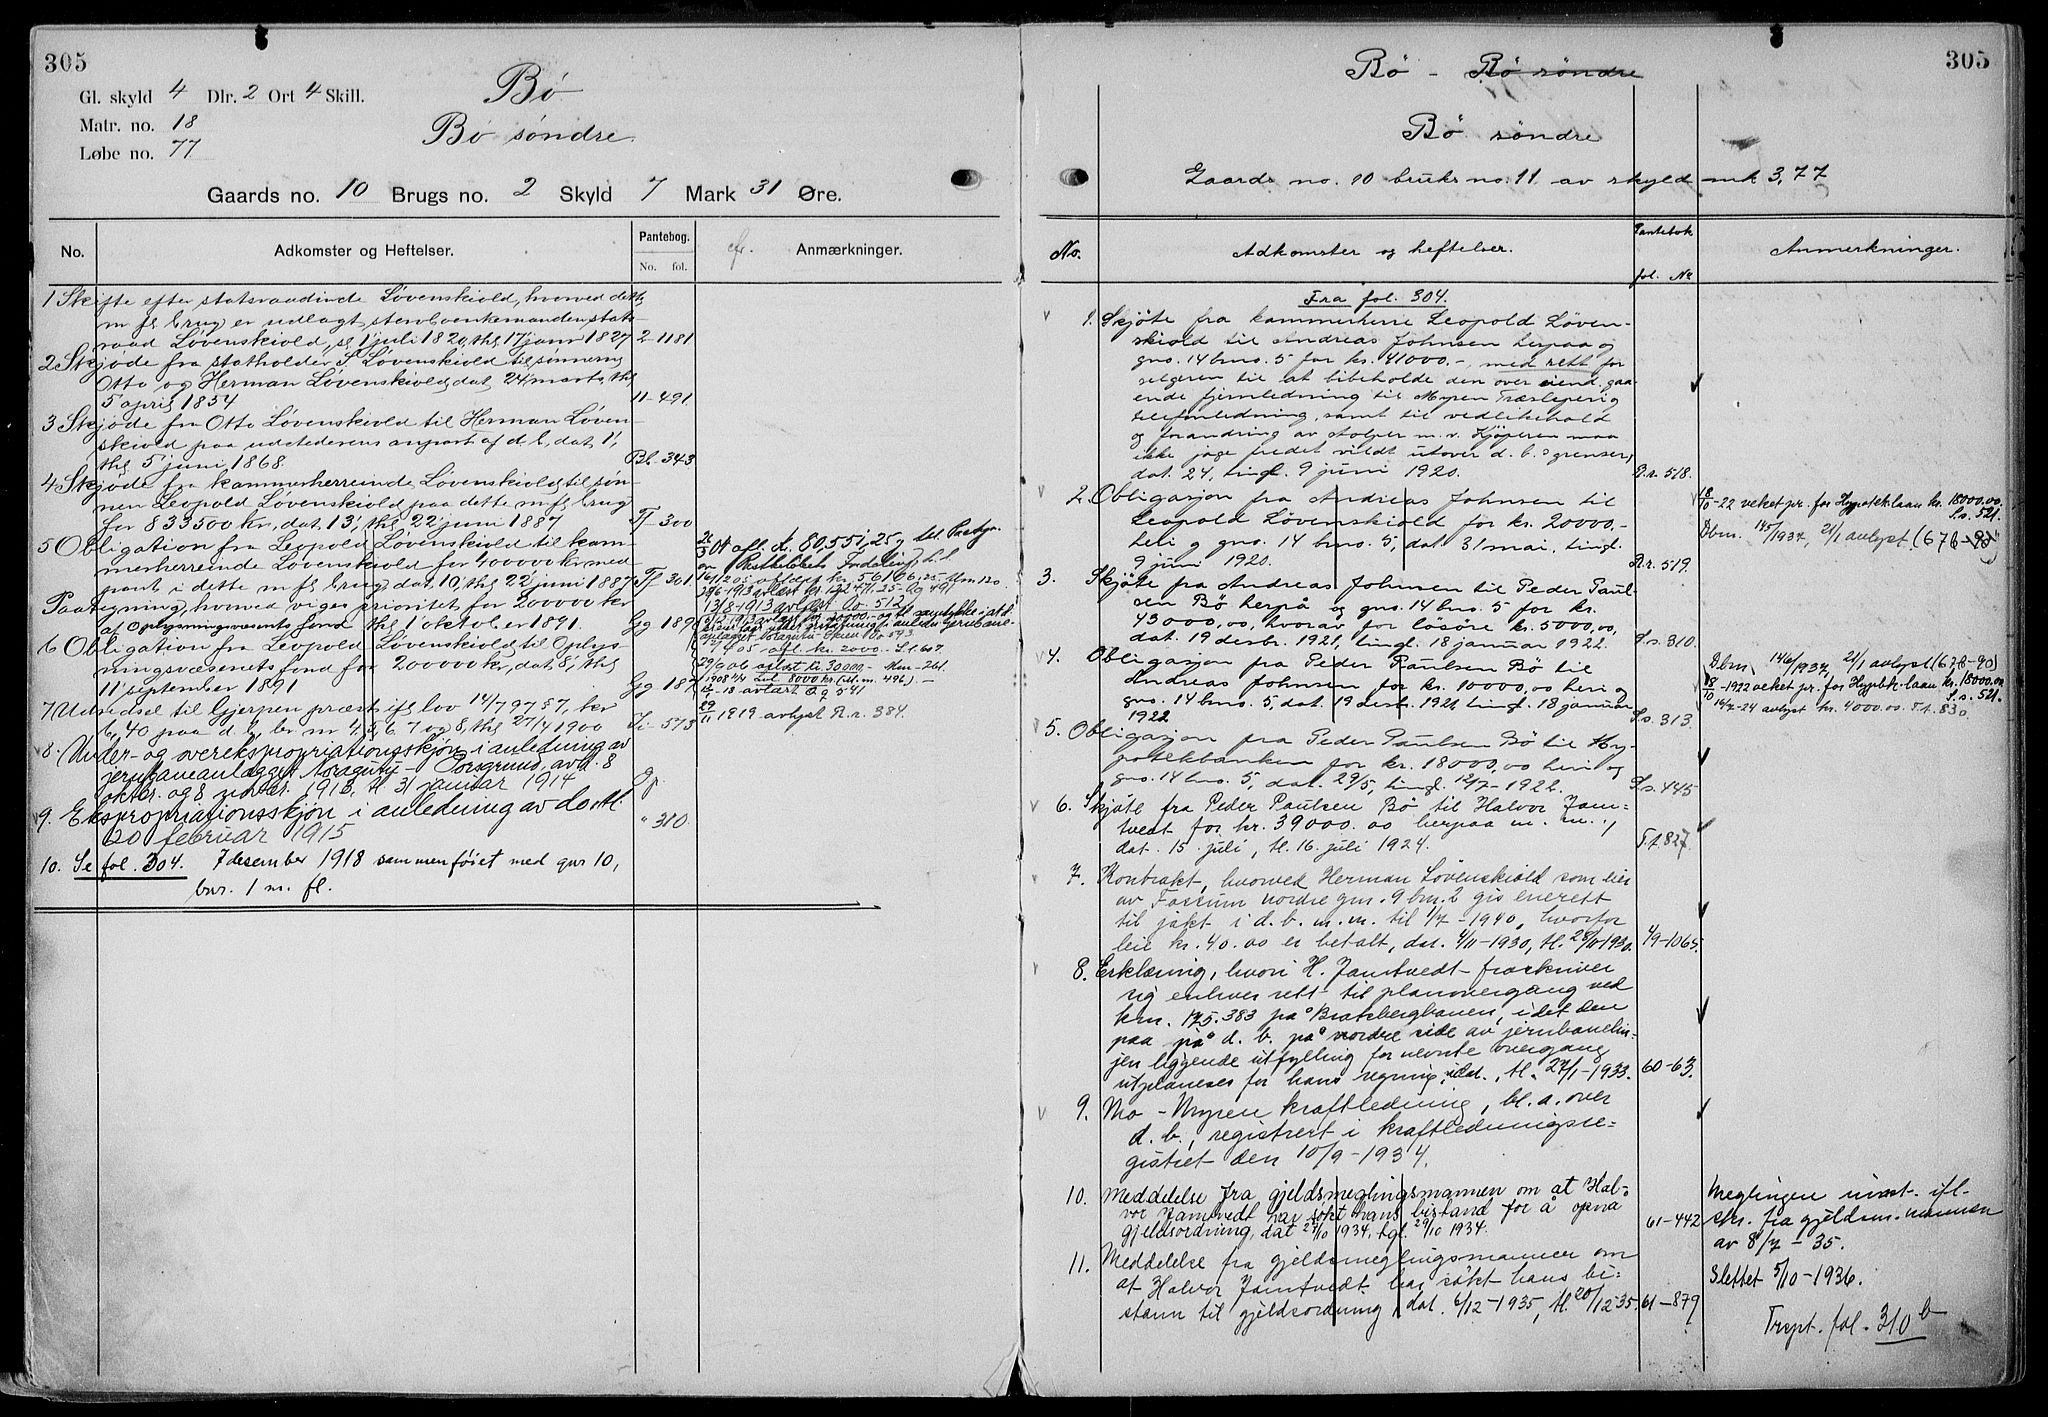 305
Gl. skyld 4 Dlr. 2 Ort 4 Skill.
Matr. no. 18
Løbe no. 77
Bö
Bö söndre.
Gaards no. 10 Brugs no. 2 Skyld 7 Mark 31 Øre.
No. Adkomster og Heftelser. Pantebog. No. fol. cfr. Anmærkninger.
1 Skifte efter statsraadinde Løvenskiold, hvorved dette
m fl brug er udlagt stervboenkemanden stats-
raad Løvenskiold, sl 1 juli 1820, thl 17 juni 1827 2-1181
2 Skjøde fra statholder S. Løvenskiold til sønnerne
Otto og Herman Løvenskiold, dat 24 marts, thl
5 april 1854 11-491.
3 Skjøde fra Otto Løvenskiold til Herman Løven-
skiold paa udstederens anpart af d. b, dat 1,
thl 5 juni 1868. Bl. 343
4 Skjøde fra kammerherreinde Løvenskiold til søn-
nen Leopold Løvenskiold paa dette m. fl. brug
for 833500 kr, dat. 13, thl 22 juni 1887 Tf 300
5 Obligation fra Leopold Løvenskiold til kam-
merherreinde Løvenskiold for 400000 kr med
pant i dette m. fl. brug, dat. 10, thl 22 juni 1887 Tf 301
Paategning, hvorved viges prioritet for 200000 kr
at Oplysningsvæsenets fond thl 1 oktober 1891. Gg 189
6 Obligation fra Leopold Løvenskiold til Oplys-
ningsvæsenets fond for 200000 kr, dat 8, thl
11 september 1891 Gg 187
7 Udskidsel til Gjerpen præst ifl lov 14/7 97 § 7, kr
6,40 paa d. b, br nr 4, 5, 6, 7 og 8, thl 27/4 1900 Li-573
8. Under- og overekspropriationsskjøn i anledning av
jernbaneanlægget Noragutu - Porsgrund, avh. 8
oktbr. og 8 novbr. 1913, tl 31 januar 1914 Op.
9. Ekspropriationsskjøn i anledning av do tl.
20 februar 1915 " 310
10. Se fol. 304. 7 desember 1918 sammenføiet med gnr 10,
bnr. 1 m. fl.
afl. kr. 80,551,25
13/8-1913 avlæst Oo. 512
afl. kr. 2000.- Ll 607.
29/9 06 aflæst kr 30000,- Mm-261.
1908 8000 kr
-18 avlæst Qq 541
29/11 1919 avlyst R.r. 384.
305
Bö - Bö söndre
Bö söndre
Gaards no. 10 bruks no. 11 av skyld mk 3,77
No. Adkomster og heftelser. Pantebok fol. Nr Anmerkninger.
Fra fol. 304.
1. Skjöte fra kammerherre Leopold Löven-
skiold til Andreas Johnsen herpaa og
gno. 14 bno. 5 for kr. 41000.-, med rett for
selgeren til at bibeholde den over eiend. gaa-
ende fjernledning til Myren Træsliperi og
telefonledning, samt til vedlikehold
og forandring av stolper m. v. Kjöperen maa
ikke jage fredet vildt utover d. b.s grenser,
dat. 24, tingl. 9 juni 1920. R.r. 518.
2. Obligasjon fra Andreas Johnsen til
Leopold Lövenskiold for kr. 20000,-
heri og gno. 14 bno. 5, dat 31 mai, tingl.
9 juni 1920. R.r. 519.
18/10-22 veket pr. for Hypotek.laan kr. 18000.00, S.s. 521.
Dbm. 145/1937, 21/1 avlyst (676-90)
3. Skjöte fra Andreas Johnsen til Peder Paul-
sen Bö herpå og gno. 14 bno. 5 for kr.
43000,00, hvorav for lösöre kr. 5000,00,
dat. 19 desbr. 1921, tingl. 18 januar 1922. S.s. 310.
4. Obligasjon fra Peder Paulsen Bö til
Andreas Johnsen for kr. 10000,00 heri og
gno. 14 bno. 5, dat. 19 desbr. 1921 tingl. 18 januar
1922. S.s. 313.
Dbm 146/1937, 21/1 avlyst (676-90)
18/10-1922 veket pr. for Hypotek.laan kr. 18000.00 S.s. 521.
14/7-24 avlyst kr. 4000.00. T.t. 830.
5. Obligasjon fra Peder Paulsen Bö til Hy-
potekbanken for kr. 18000,00 heri og
gno. 14 bno. 5, dat. 29/5, tingl. 12/7-1922. S.s. 445
6. Skjöte fra Peder Paulsen Bö til Halvor Jam-
tvedt for kr. 39000.00 herpaa m. m.,
dat. 15 juli, tl. 16 juli 1924. T.t 827.
7. Kontrakt, hvorved Herman Lövenskiold som eier
av Fossum nordre gnr. 9 bnr. 2 gis enerett
til jakt i d. b. m. m. til 1/7-1940, hvorfor
leie kr. 40.00 er betalt, dat. 4/11-1930, tl. 28/11 1930. 49-1065.
8. Erklæring, hvori H. Jamtvedt fraskriver
sig enhver rett til planovergang ved
km. 175.383 på Bratsbergbanen, idet den
paa på d. b. på nordre side av jernbanelin-
jen liggende utfylling for nevnte overgang
utplaneres for hans regning, dat., tl. 27/1-1933. 60-63.
9. Mo - Myren kraftledning, bl. a. over
d. b., registrert i kraftledningsre-
gistret den 10/9-1934.
10. Meddelelse fra gjeldsmeglingsmannen om at Hal-
vor Jamtvedt har sökt hans bistand for å opnå
gjeldsordning, dat 27/10 1934, tgl. 29/10 1934. 61-442
Meglingen innst. ifl.
skr. fra gjeldsm. mannen
av 8/7-35.
11. Meddelelse fra gjeldsmeglingsmannen om
at Halvor Jamtvedt har sökt hans bi-
stann til gjeldsordning, dat. 6/12-1935, tl. 20/12-35. 61-879
Slettet 5/10-1936.
Trspt. fol. 310 b